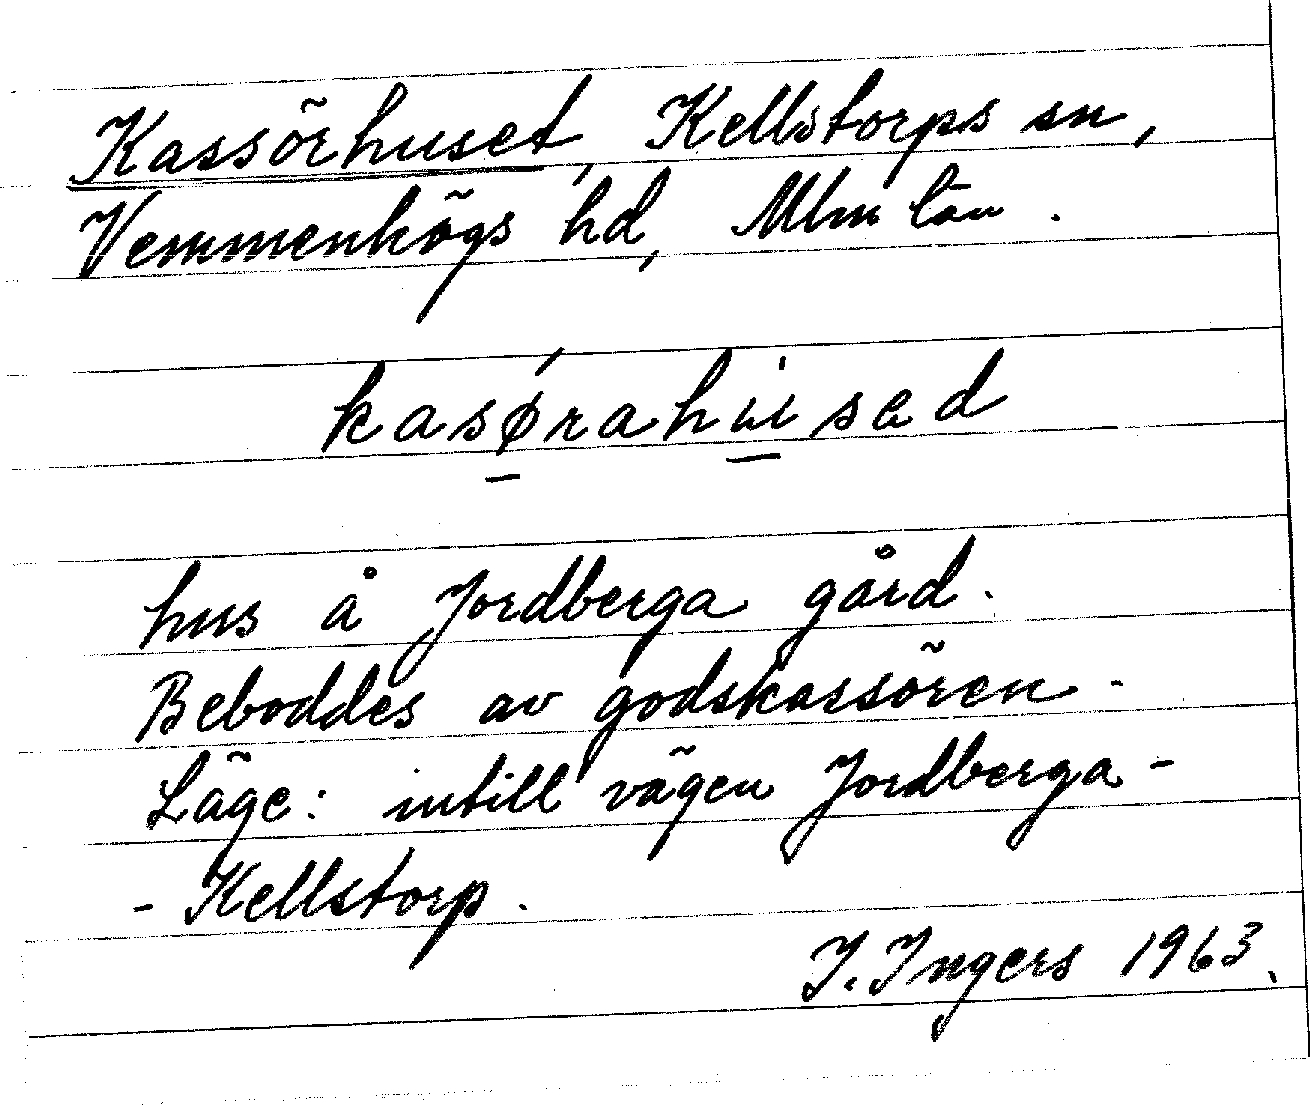 Kassörhuset, Kellstorps sn,
Vemmenhögs hd, Mlm län.
kasørahúsed
hus å Jordberga gård.
Beboddes av godskassören.
Läge: intill vägen Jordberga-
- Kellstorp.
I. Ingers 1963.